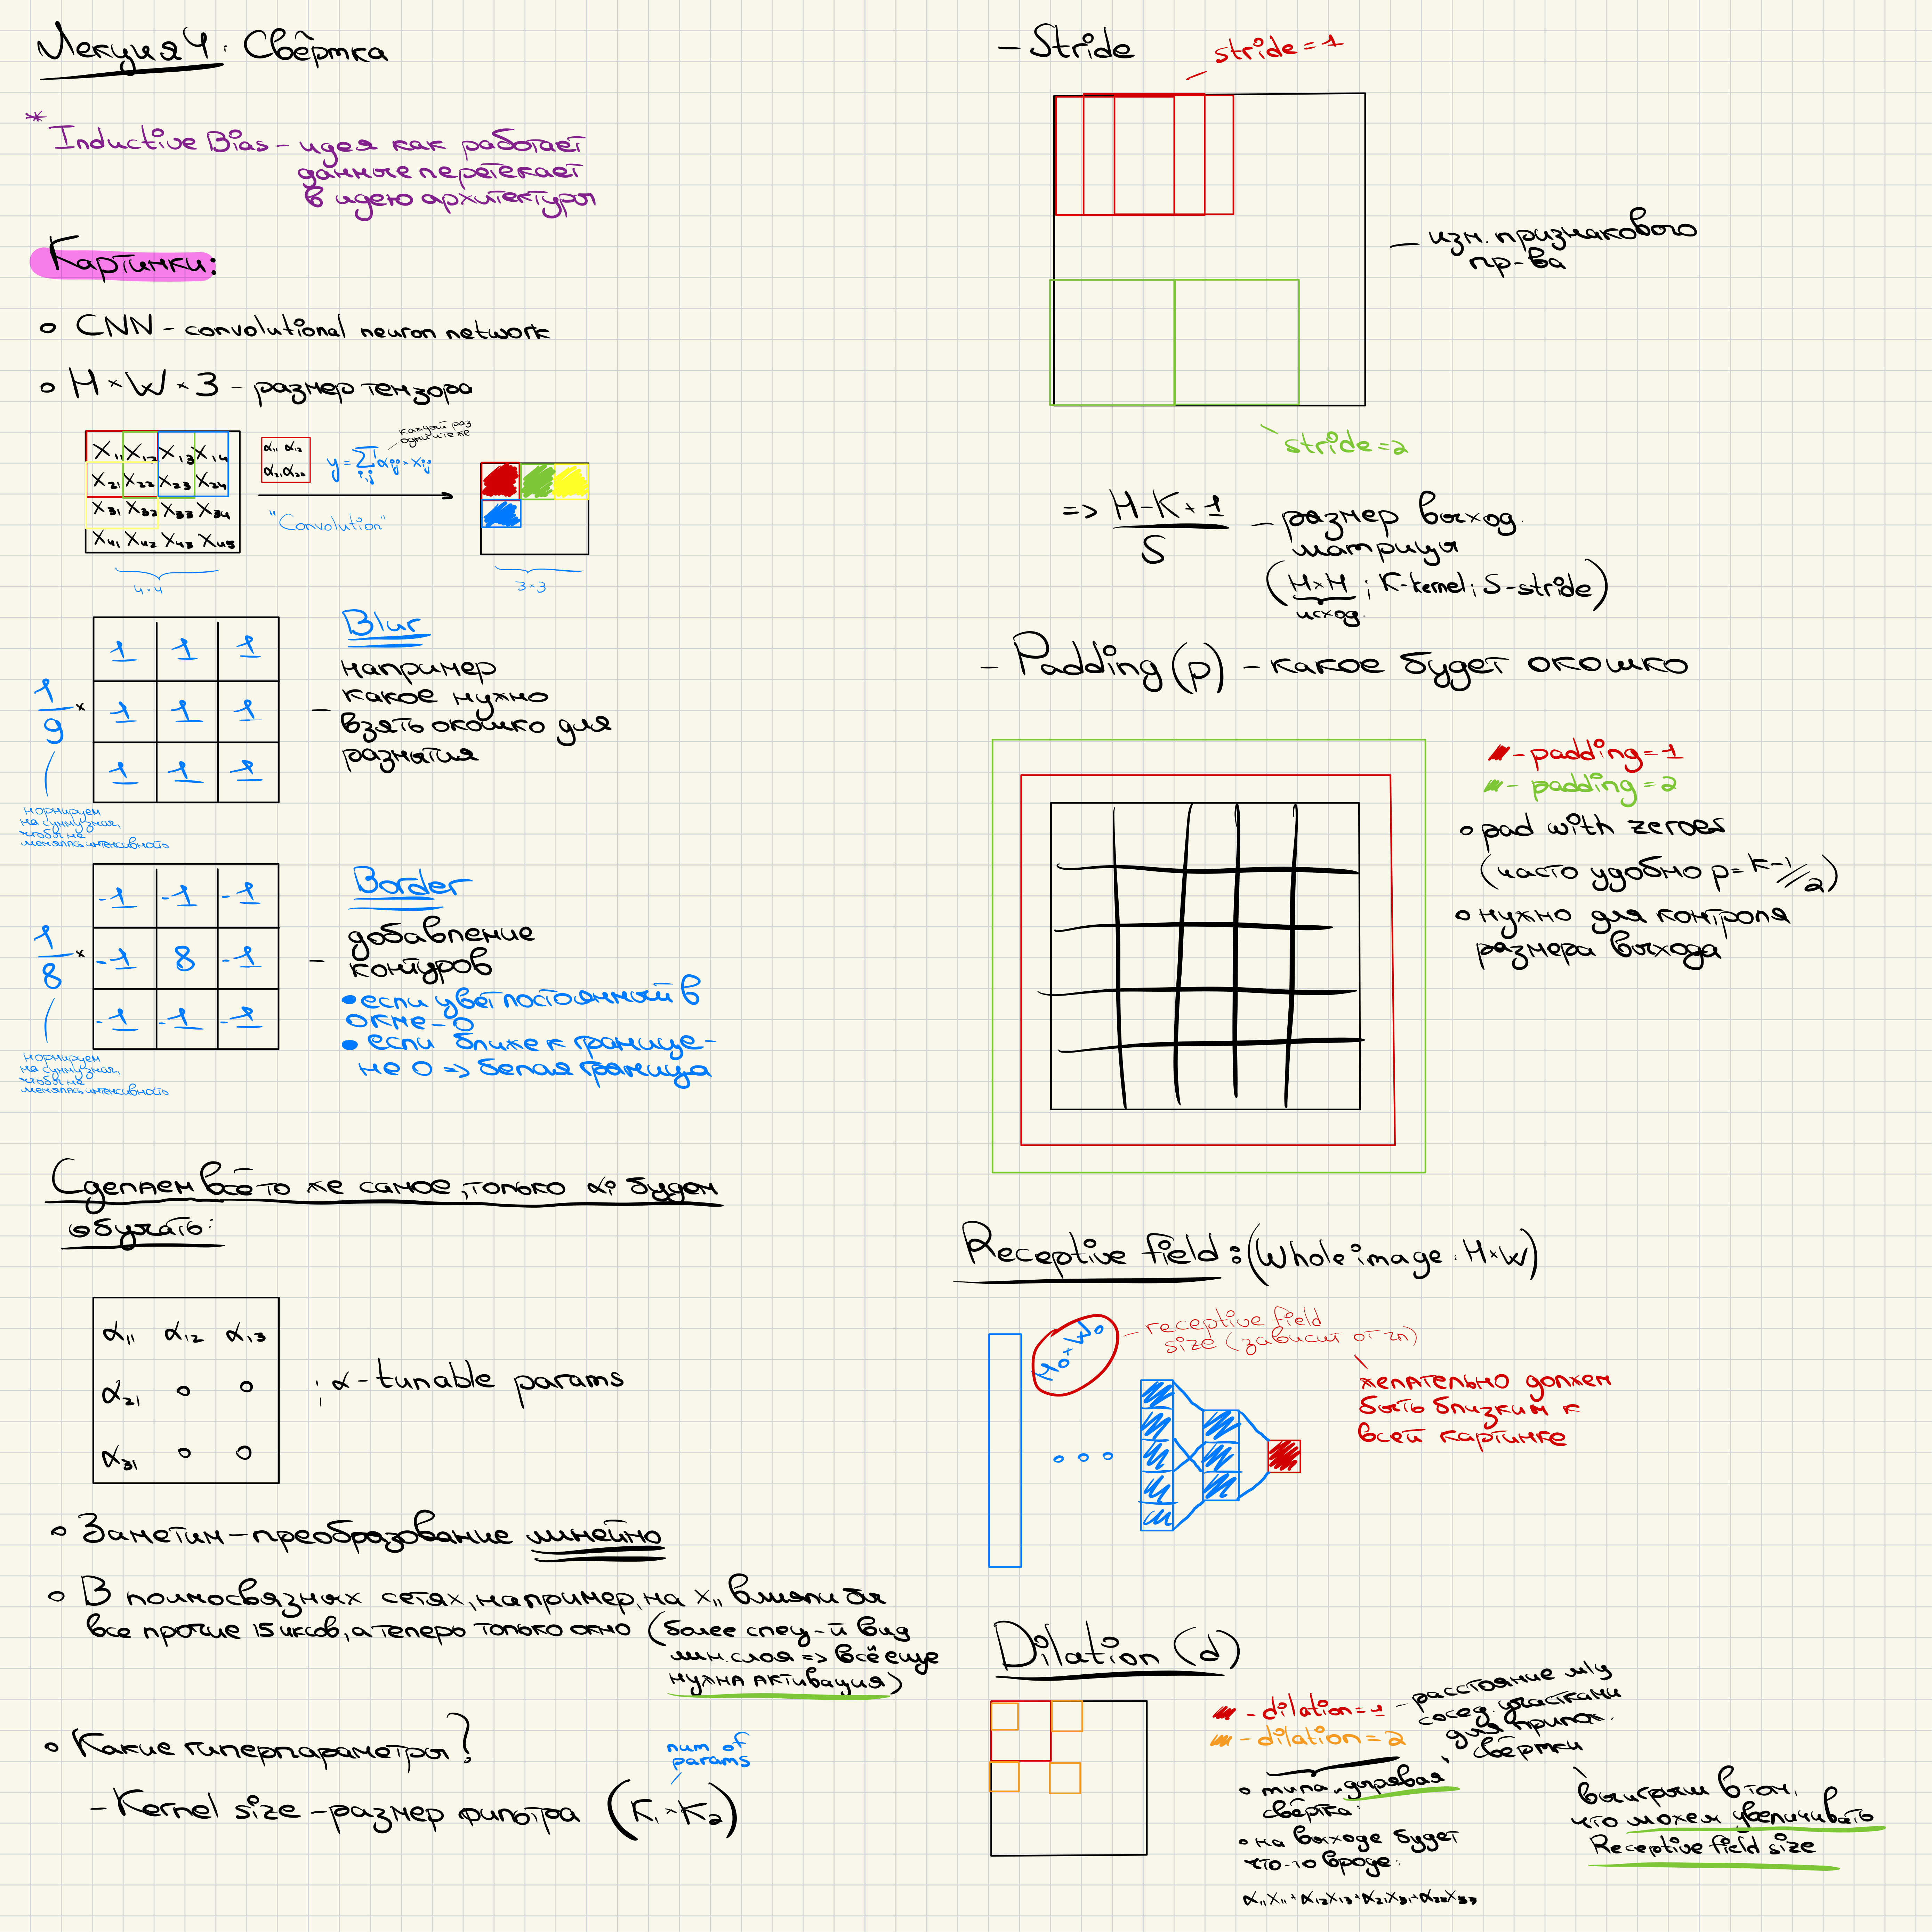 Лекция 4: Свёртка
* Inductive Bias - идея как работает
данные перетекает
в идею архитектуры
Картинки:
o CNN - convolutional neuron network
o H × W × 3 - размер тензора
x₁₁ x₁₂ x₁₃ x₁₄
x₂₁ x₂₂ x₂₃ x₂₄
x₃₁ x₃₂ x₃₃ x₃₄
x₄₁ x₄₂ x₄₃ x₄₅
4×4
α₁₁ α₁₂
α₂₁ α₂₂
y = ∑ᵢ,ⱼ αᵢⱼ × xᵢⱼ
каждый раз
одни и те же
"Convolution"
3×3
1/9 ×
1 1 1
1 1 1
1 1 1
нормируем
на сумму знач.
чтобы не
менялась интенсивность
Blur
- например
какое нужно
взять окошко для
размытия
1/8 ×
-1 -1 -1
-1 8 -1
-1 -1 -1
нормируем
на сумму знач.
чтобы не
менялась интенсивность
Border
- добавление
контуров
• если цвет постоянный в
окне - 0
• если ближе к границе -
не 0 => белая граница
Сделаем всё то же самое, только αᵢ будем
обучать:
α₁₁ α₁₂ α₁₃
α₂₁ o o
α₃₁ o o
; α - tunable params
o Заметим - преобразование линейно
o В полносвязных сетях, например, на x₁₁ влияли бы
все прочие 15 иксов, а теперь только окно (более спец-й вид
лин. слоя => всё еще
нужна активация)
o Какие гиперпараметры?
num of
params
- Kernel size - размер фильтра (K₁ × K₂)
- Stride
stride = 1
- изм. признакового
пр-ва
stride = 2
=> (H-K+1)/S - размер выход.
матрицы
(H×H ; K-kernel; S-stride)
исход.
- Padding (p) - какое будет окошко
- padding = 1
- padding = 2
o pad with zeroes
(часто удобно p = K-1//2)
o нужно для контроля
размера выхода
Receptive field : (Whole image : H×W)
H₀ × W₀
- receptive field
size (зависит от гп)
желательно должен
быть близким к
всей картинке
Dilation (d)
- dilation = 1 - расстояние м/у
сосед. участками
для прилож.
свёртки
- dilation = 2
o типа "дырявая"
свёртка:
o на выходе будет
что-то вроде:
α₁₁x₁₁ + α₁₂x₁₃ + α₂₁x₃₁ + α₂₂x₃₃
выигрыш в том,
что можем увеличивать
Receptive field size